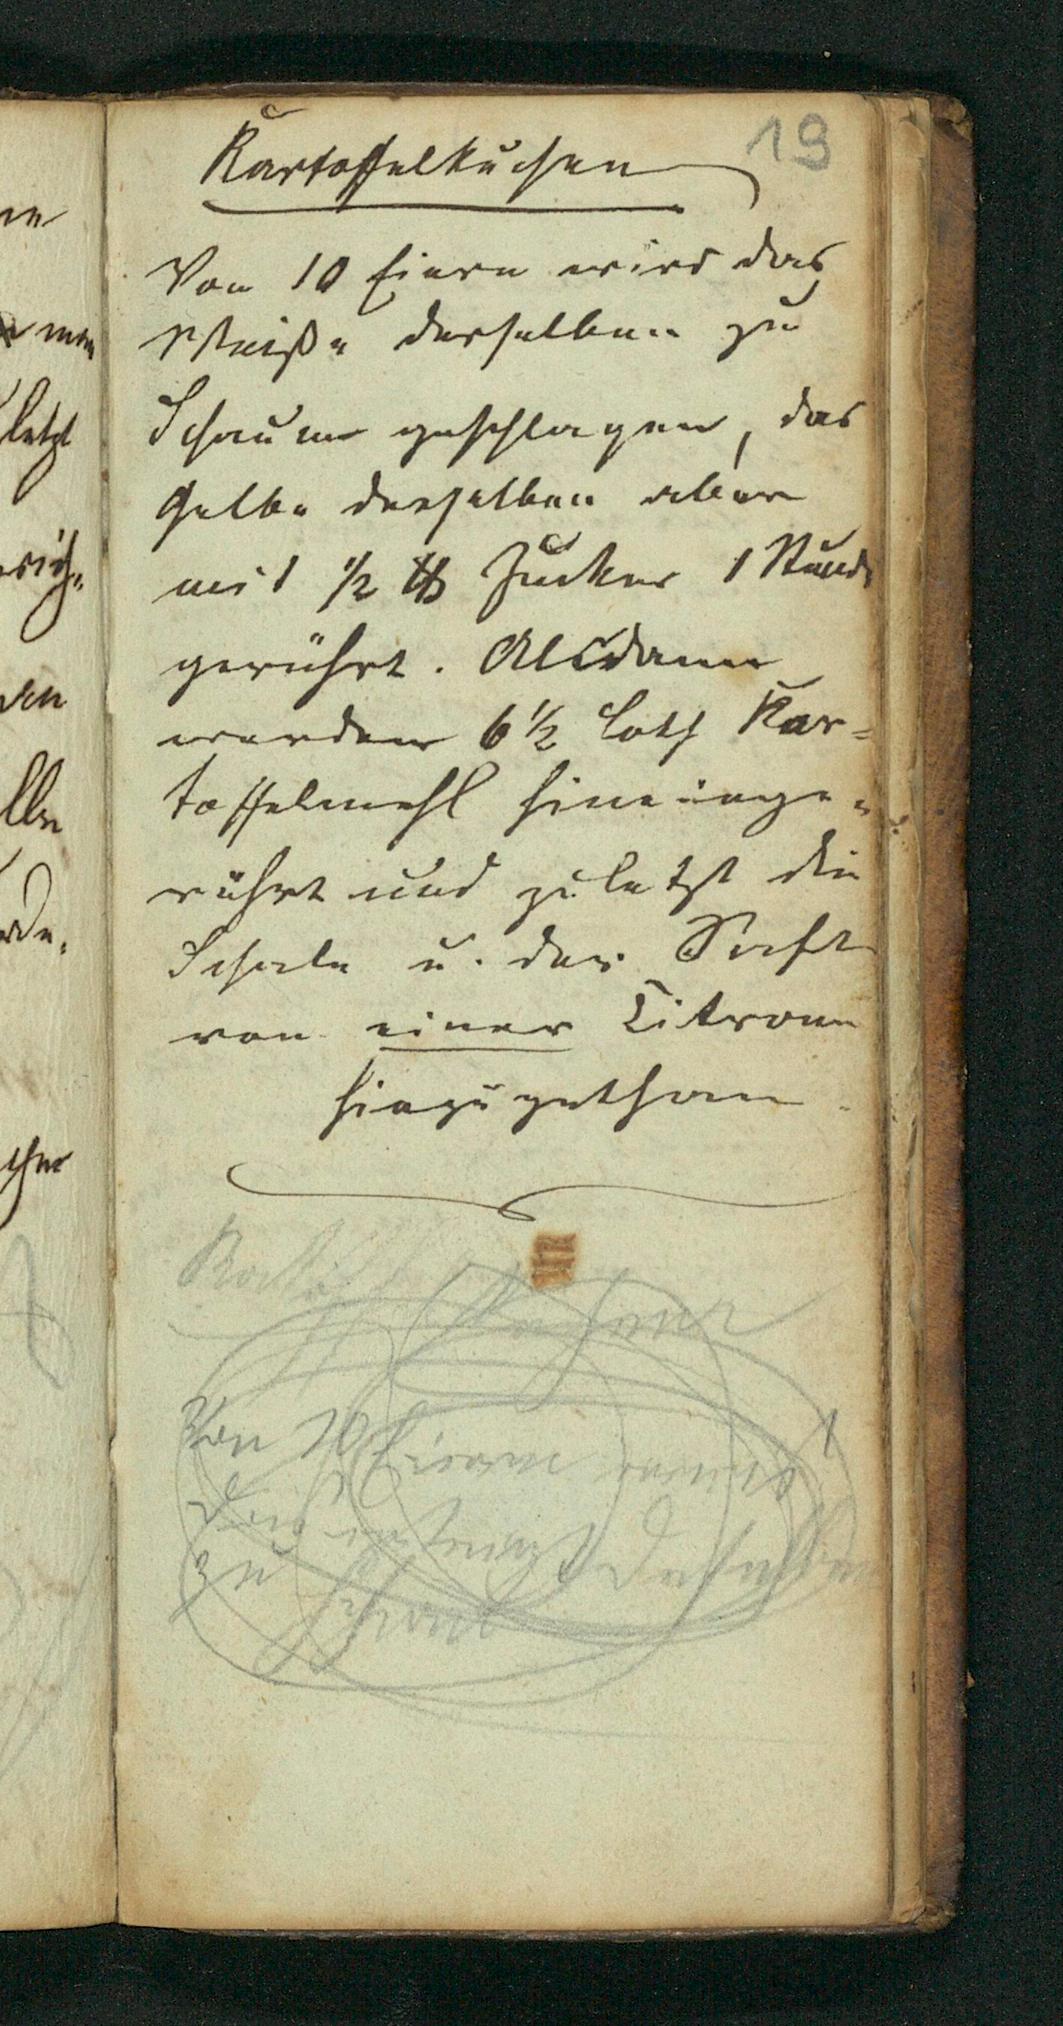 19
Kartoffelkuchen
Von 10 Eiern wird das
Weiße derselben zu
Schaum geschlagen, das
Gelbe derselben aber
mit 1/2 ℔ Zucker 1 Stunde
gerührt. Alsdann
werden 6 1/2 Loth Kar=
toffelmehl hineinge=
rührt und zuletzt die
Schale u. der Saft
von einer Citrone
hinzugethan.
Von 10 Eiern
derselben
zu